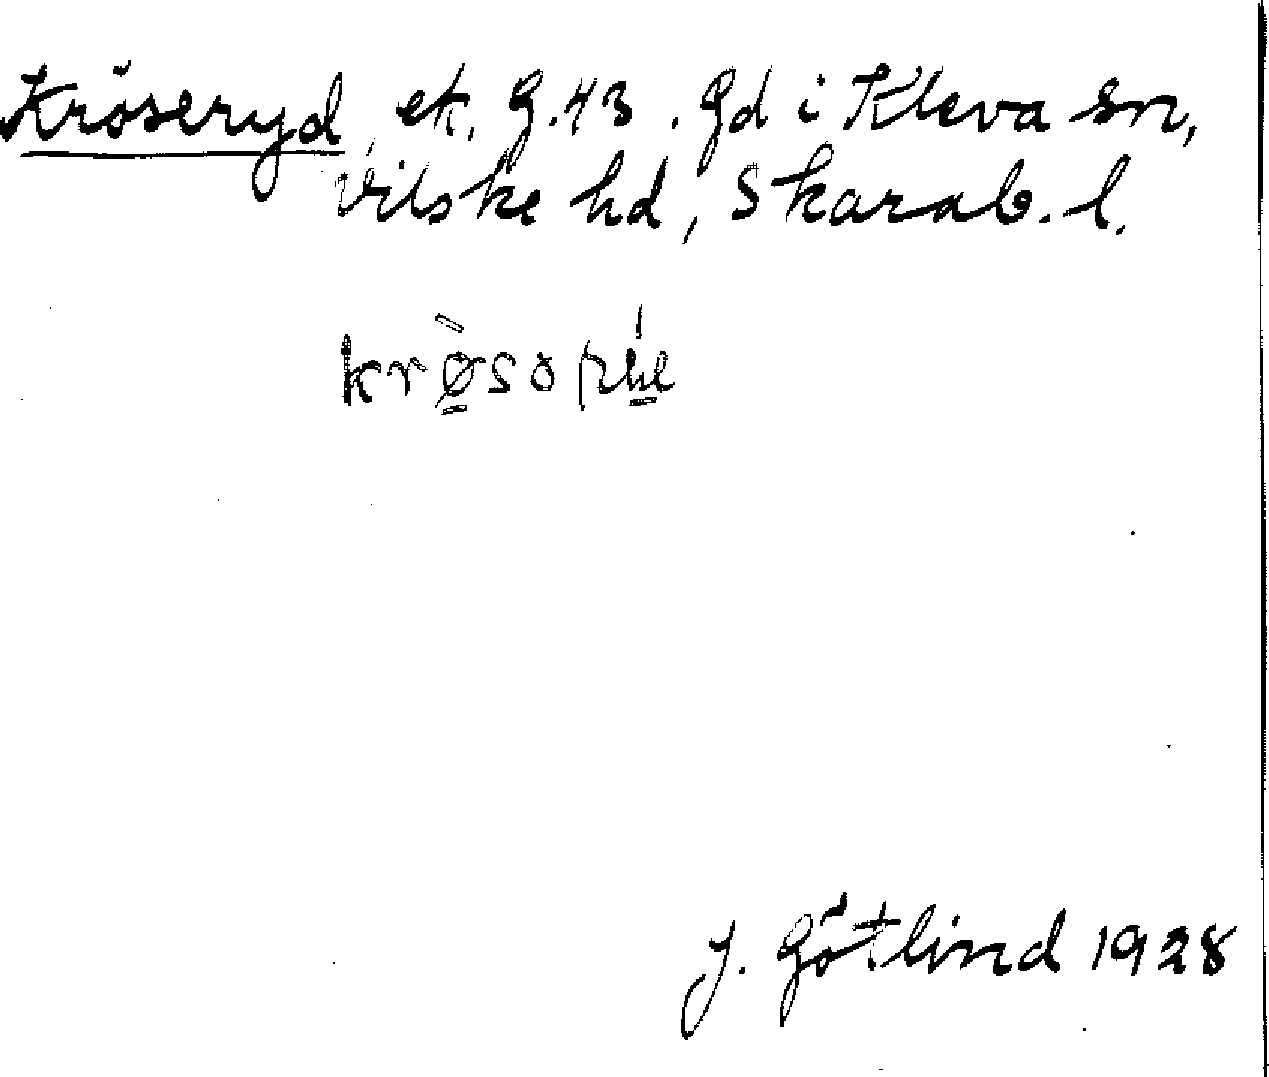 Kröseryd, ek. g. 43. Gd i Kleva sn,
Vilske hd, Skarab. l.
J. Götlind 1928